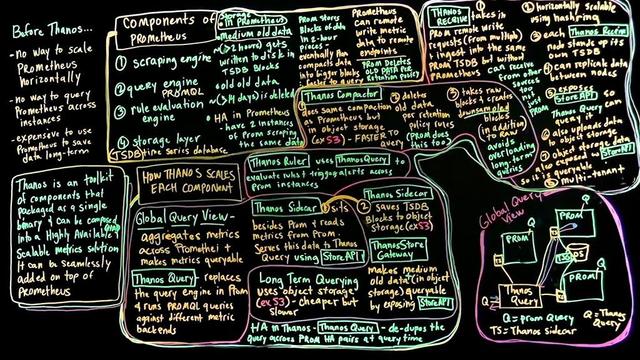 Before Thanos...
- no way to scale
Prometheus
horizontally
- no way to query
Prometheus across
instances
- expensive to use
Prometheus to save
data long-term
Thanos is an toolkit
of components that
packaged as a single
binary & can be composed
into a Highly Available &
Scalable metrics solution
It can be seamlessly
added on top of
Prometheus
Components of
Prometheus
① scraping engine
② query engine
PROMQL
③ rule evaluation
engine
④ storage layer
TSDB time series database
Storage
in Prometheus
Medium old data
(>2 hours) gets
written to disk in
TSDB Blocks
- old old data
(> 14 days) is deleted
- HA in Prometheus
- have 2 instances
of Prom scraping
the same data
Prom stores
Blocks of data
in 2-hour
pieces
eventually Prom
compacts data
into bigger blocks
faster to query
Prometheus
can remote
write metric
data to remote
endpoints
Prom deletes
old data per
retention policy
Thanos Compactor
① does same compaction
as Prometheus but
in object storage
(ex S3) - FASTER to
query
② deletes
old data
per retention
policy rules
(Prom does
this too)
③ takes raw
blocks & creates
downsampled
blocks
(in addition)
to raw
avoids
overloading
long-term
queries
Thanos Receive
① takes in
Prom remote write
requests (from multiple)
& ingest into the same
Prom TSDB but w/out
Prometheus
can receive
from other
sources
too
just
Prom
② horizontally scalable
using hashring
③ each Thanos Receive
node stands up its
own TSDB
④ can replicate data
between nodes
⑤ exposed
Store API so
Thanos Query
can query it
⑥ also uploads data
to object storage
⑦ object storage data
also exposed w/ Store API
so it is queryable
⑧ multi-tenant
HOW THANOS SCALES
EACH COMPONENT
Thanos Ruler uses Thanos Query to
evaluate rules + trigger alerts across
Prom instances
Global Query View-
- aggregates metrics
across Promethei +
makes metrics queryable
Thanos Query - replaces
the query engine in Prom
& runs PROMQL queries
against different metric
backends
Thanos Sidecar sits
besides Prom & reads
metrics from Prom -
Serves this data to Thanos
Query using Store API
Thanos Sidecar
② saves TSDB
Blocks to object
storage (ex S3)
Thanos Store
Gateway
makes medium
old data (in object
storage) queryable
by exposing Store API
Long Term Querying
uses object storage
(ex S3) - cheaper but
slower
HA in Thanos - Thanos Query - de-dupes the
query across Prom HA pairs at query time
Global Query
View
Q
PROM
Q
PROM
TS
TS
TSG
OS
Q
PROM
Thanos
Query
Q
Q = prom Query
Q = Thanos
Query
TS = Thanos sidecar